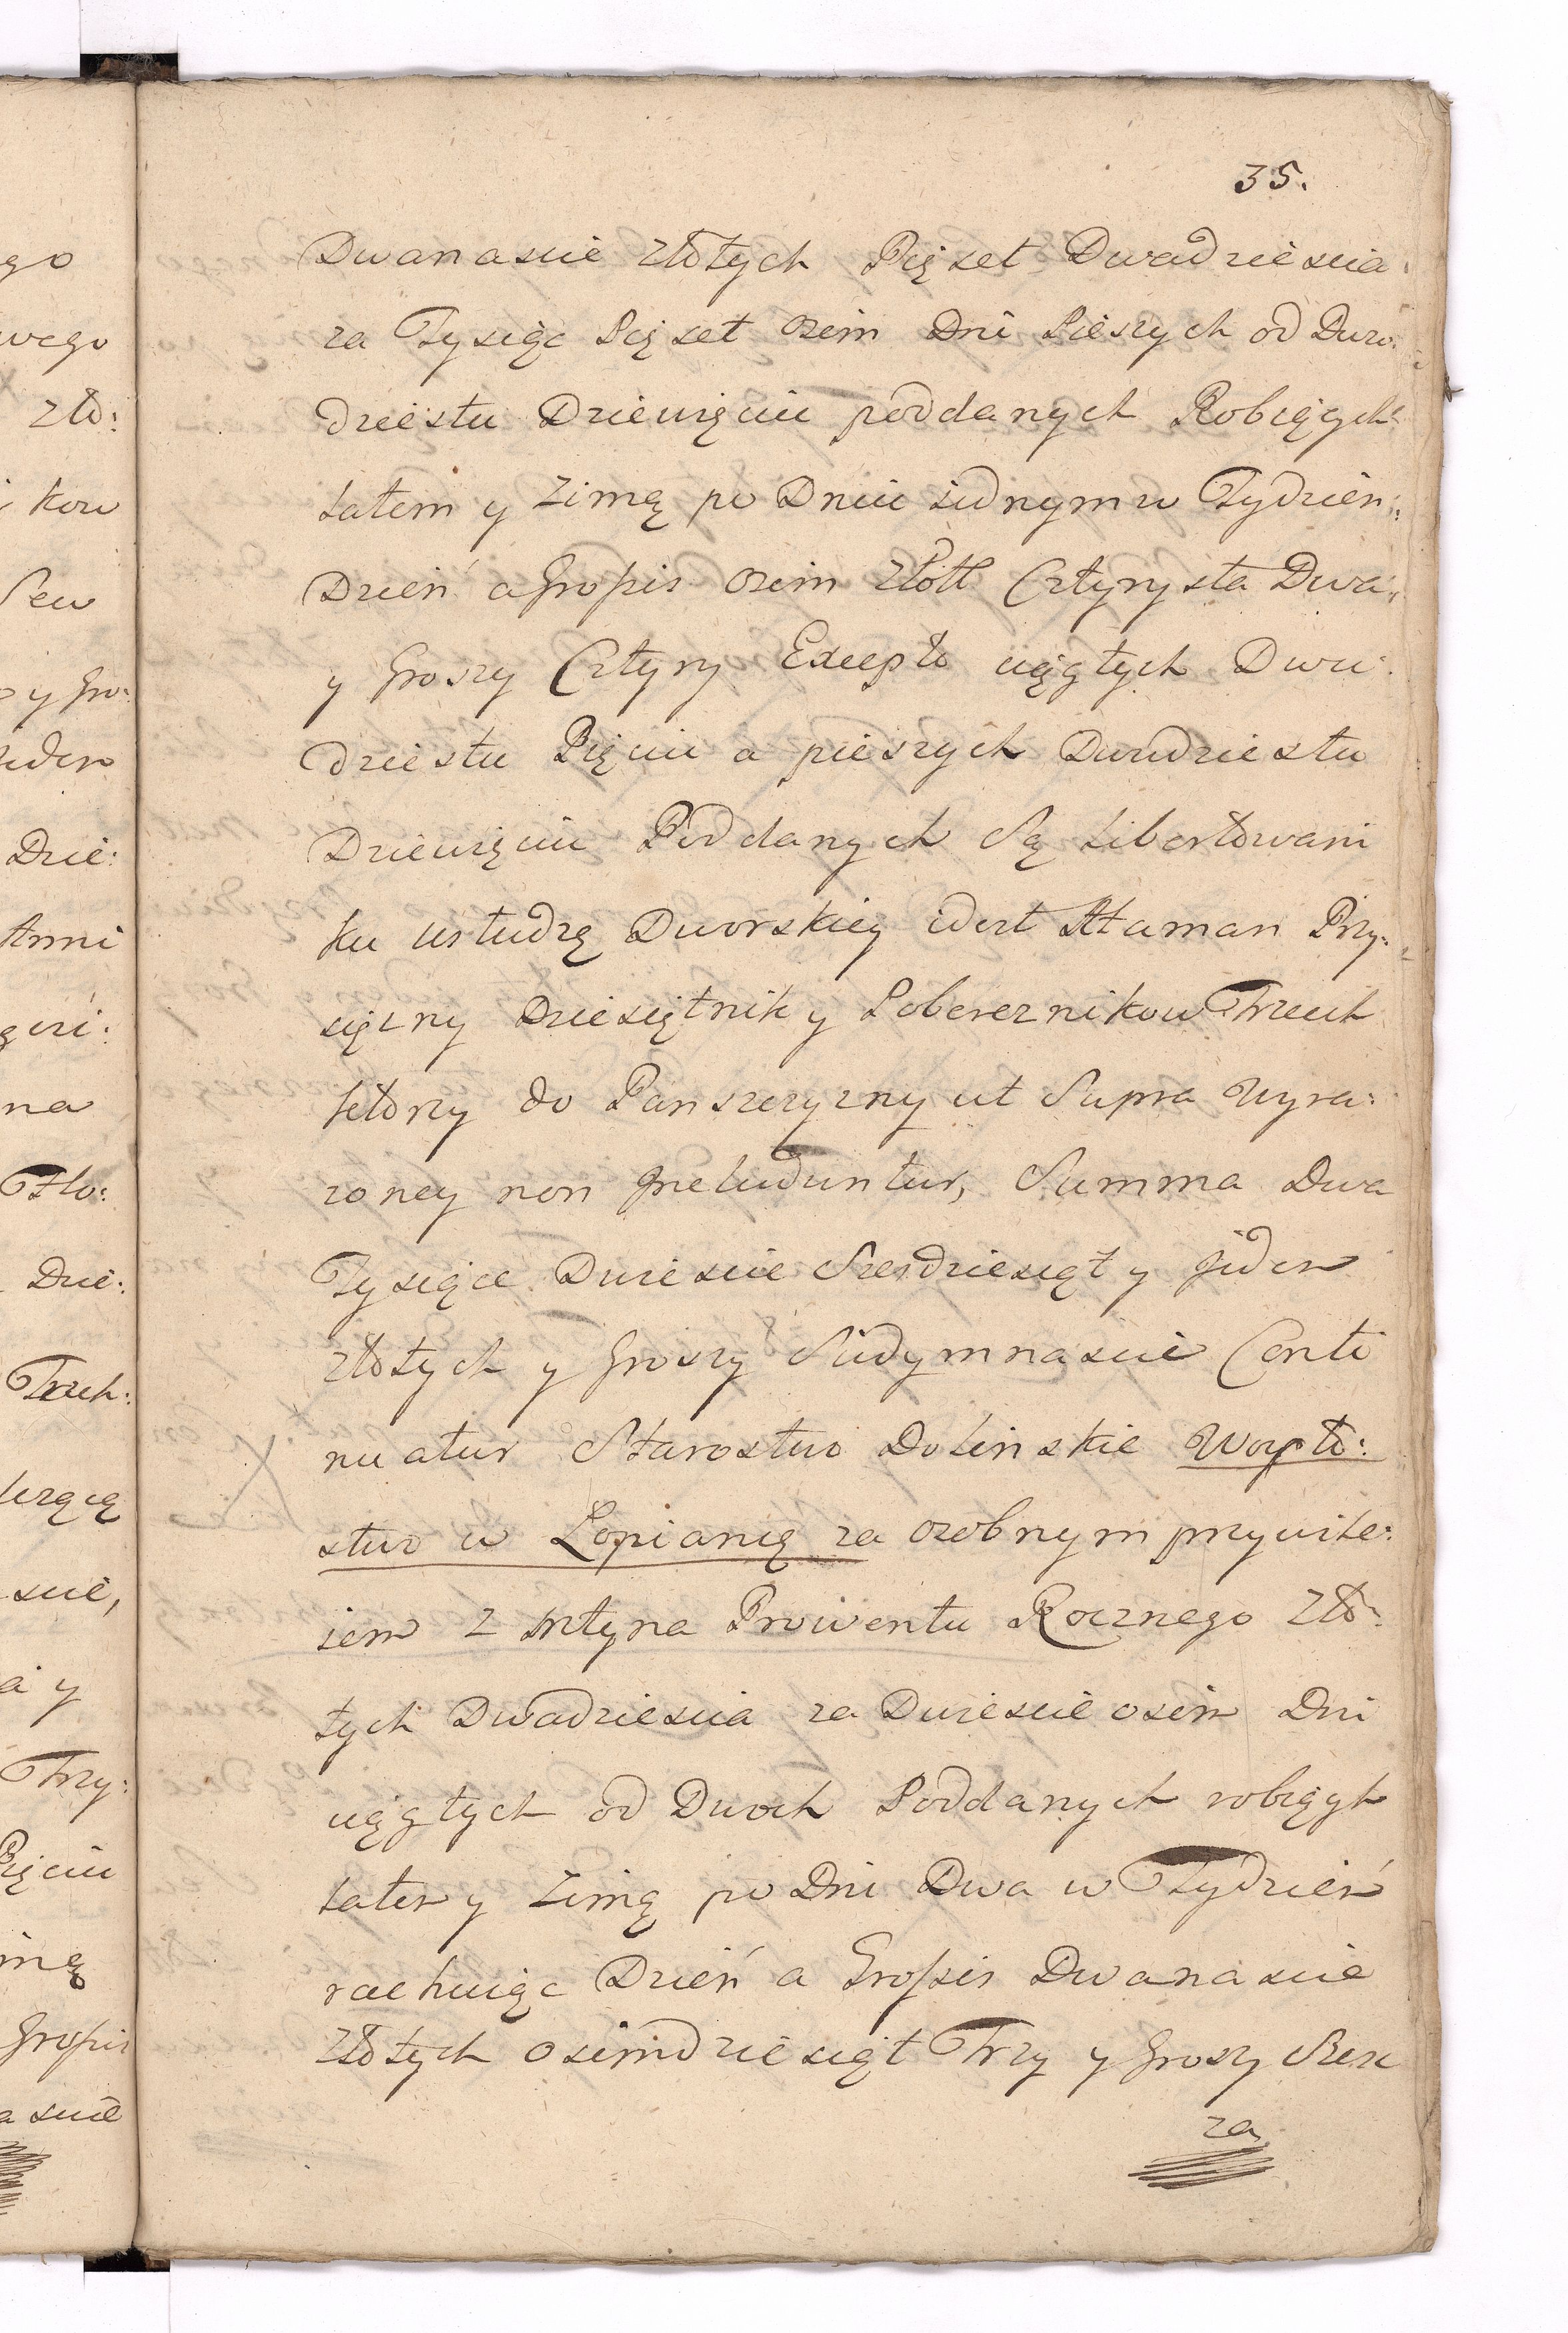 go
wego
zło:
kow
Sew
y Gro:
ieden
Dzie:
Anni
na
Dzie:
Trzech:
scie,
a y
Trzy:
Pięciu
Groszis
a scie
35.
Dwanascie złotych Pięset Dwadziescia
za Tysiąc Pięset osim Dni Pieszych od Dwu:
dziestu Dziewięciu poddanych Robiących
Latem y Zimą po Dniu iednym w Tydzien:
Dzień a Groszis osim złott Cztyrysta Dwa:
y Groszy Cztyry Excepto ciągłych Dwu:
dziestu Pięciu a pieszych Dwudziestu
Dziewięciu Poddanych Są Libertowani
ku usłudzę Dworskiey idest Ataman Przy:
siężny Dziesiętnik y Pobereznikow Trzech
ktorzy do Panszczyzny ut Supra Wyra:
zoney non Jncluduntur, Summa Dwa
Tysiące Dwiescie Szesdziesiąt y Jeden
złotych y Groszy Siedymnascie Conti
nuatur Starostwo Dolinskie Woyto:
stwo w Lopianię za osobnym przywile:
iem z Młyna Prowentu Rocznego Zło:
tych Dwadziescia za Dwiescie osim Dni
ciągłych od Dwoch Poddanych robiących
Latem y Zimą po Dni Dwa w Tydzień
rachuiąc Dzień a Groszis Dwanascie
złotych osimdziesiąt Trzy y Groszy Szesc
za